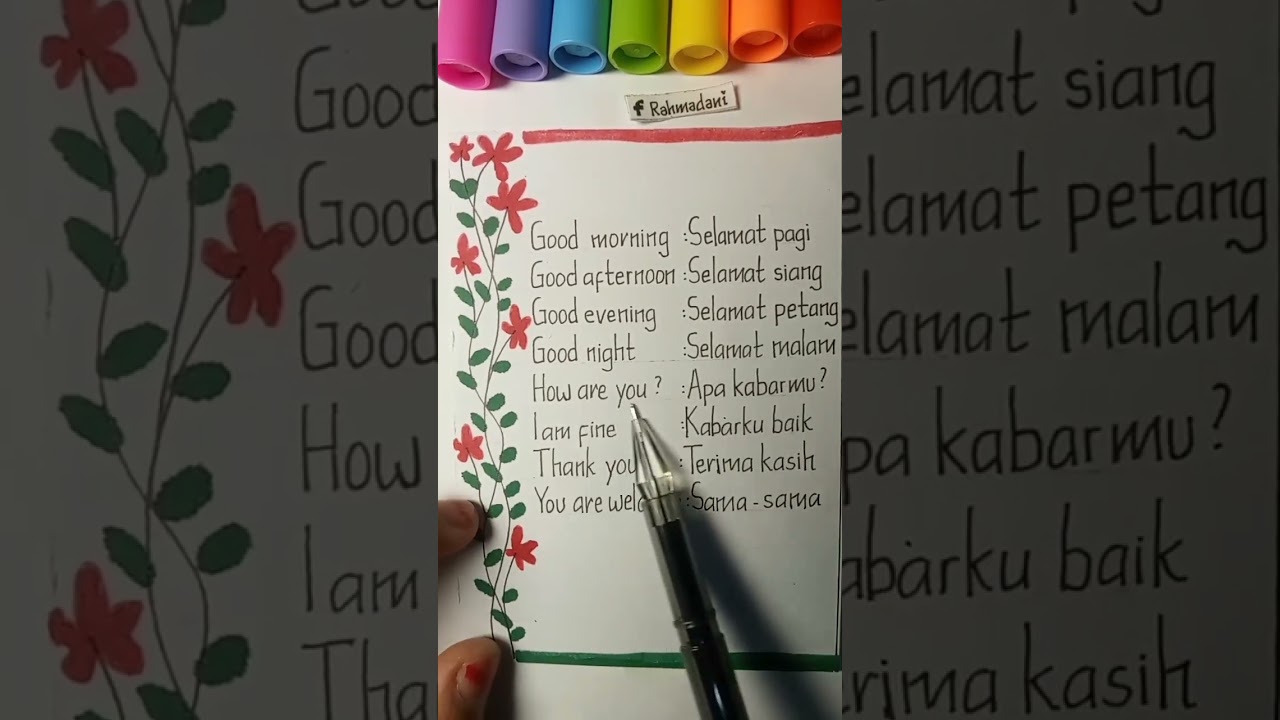 f Rahmadani
Good morning : Selamat pagi
Good afternoon : Selamat siang
Good evening : Selamat petang
Good night : Selamat malam
How are you? : Apa kabarmu?
I am fine : Kabarku baik
Thank you : Terima kasih
You are : Sama - sama